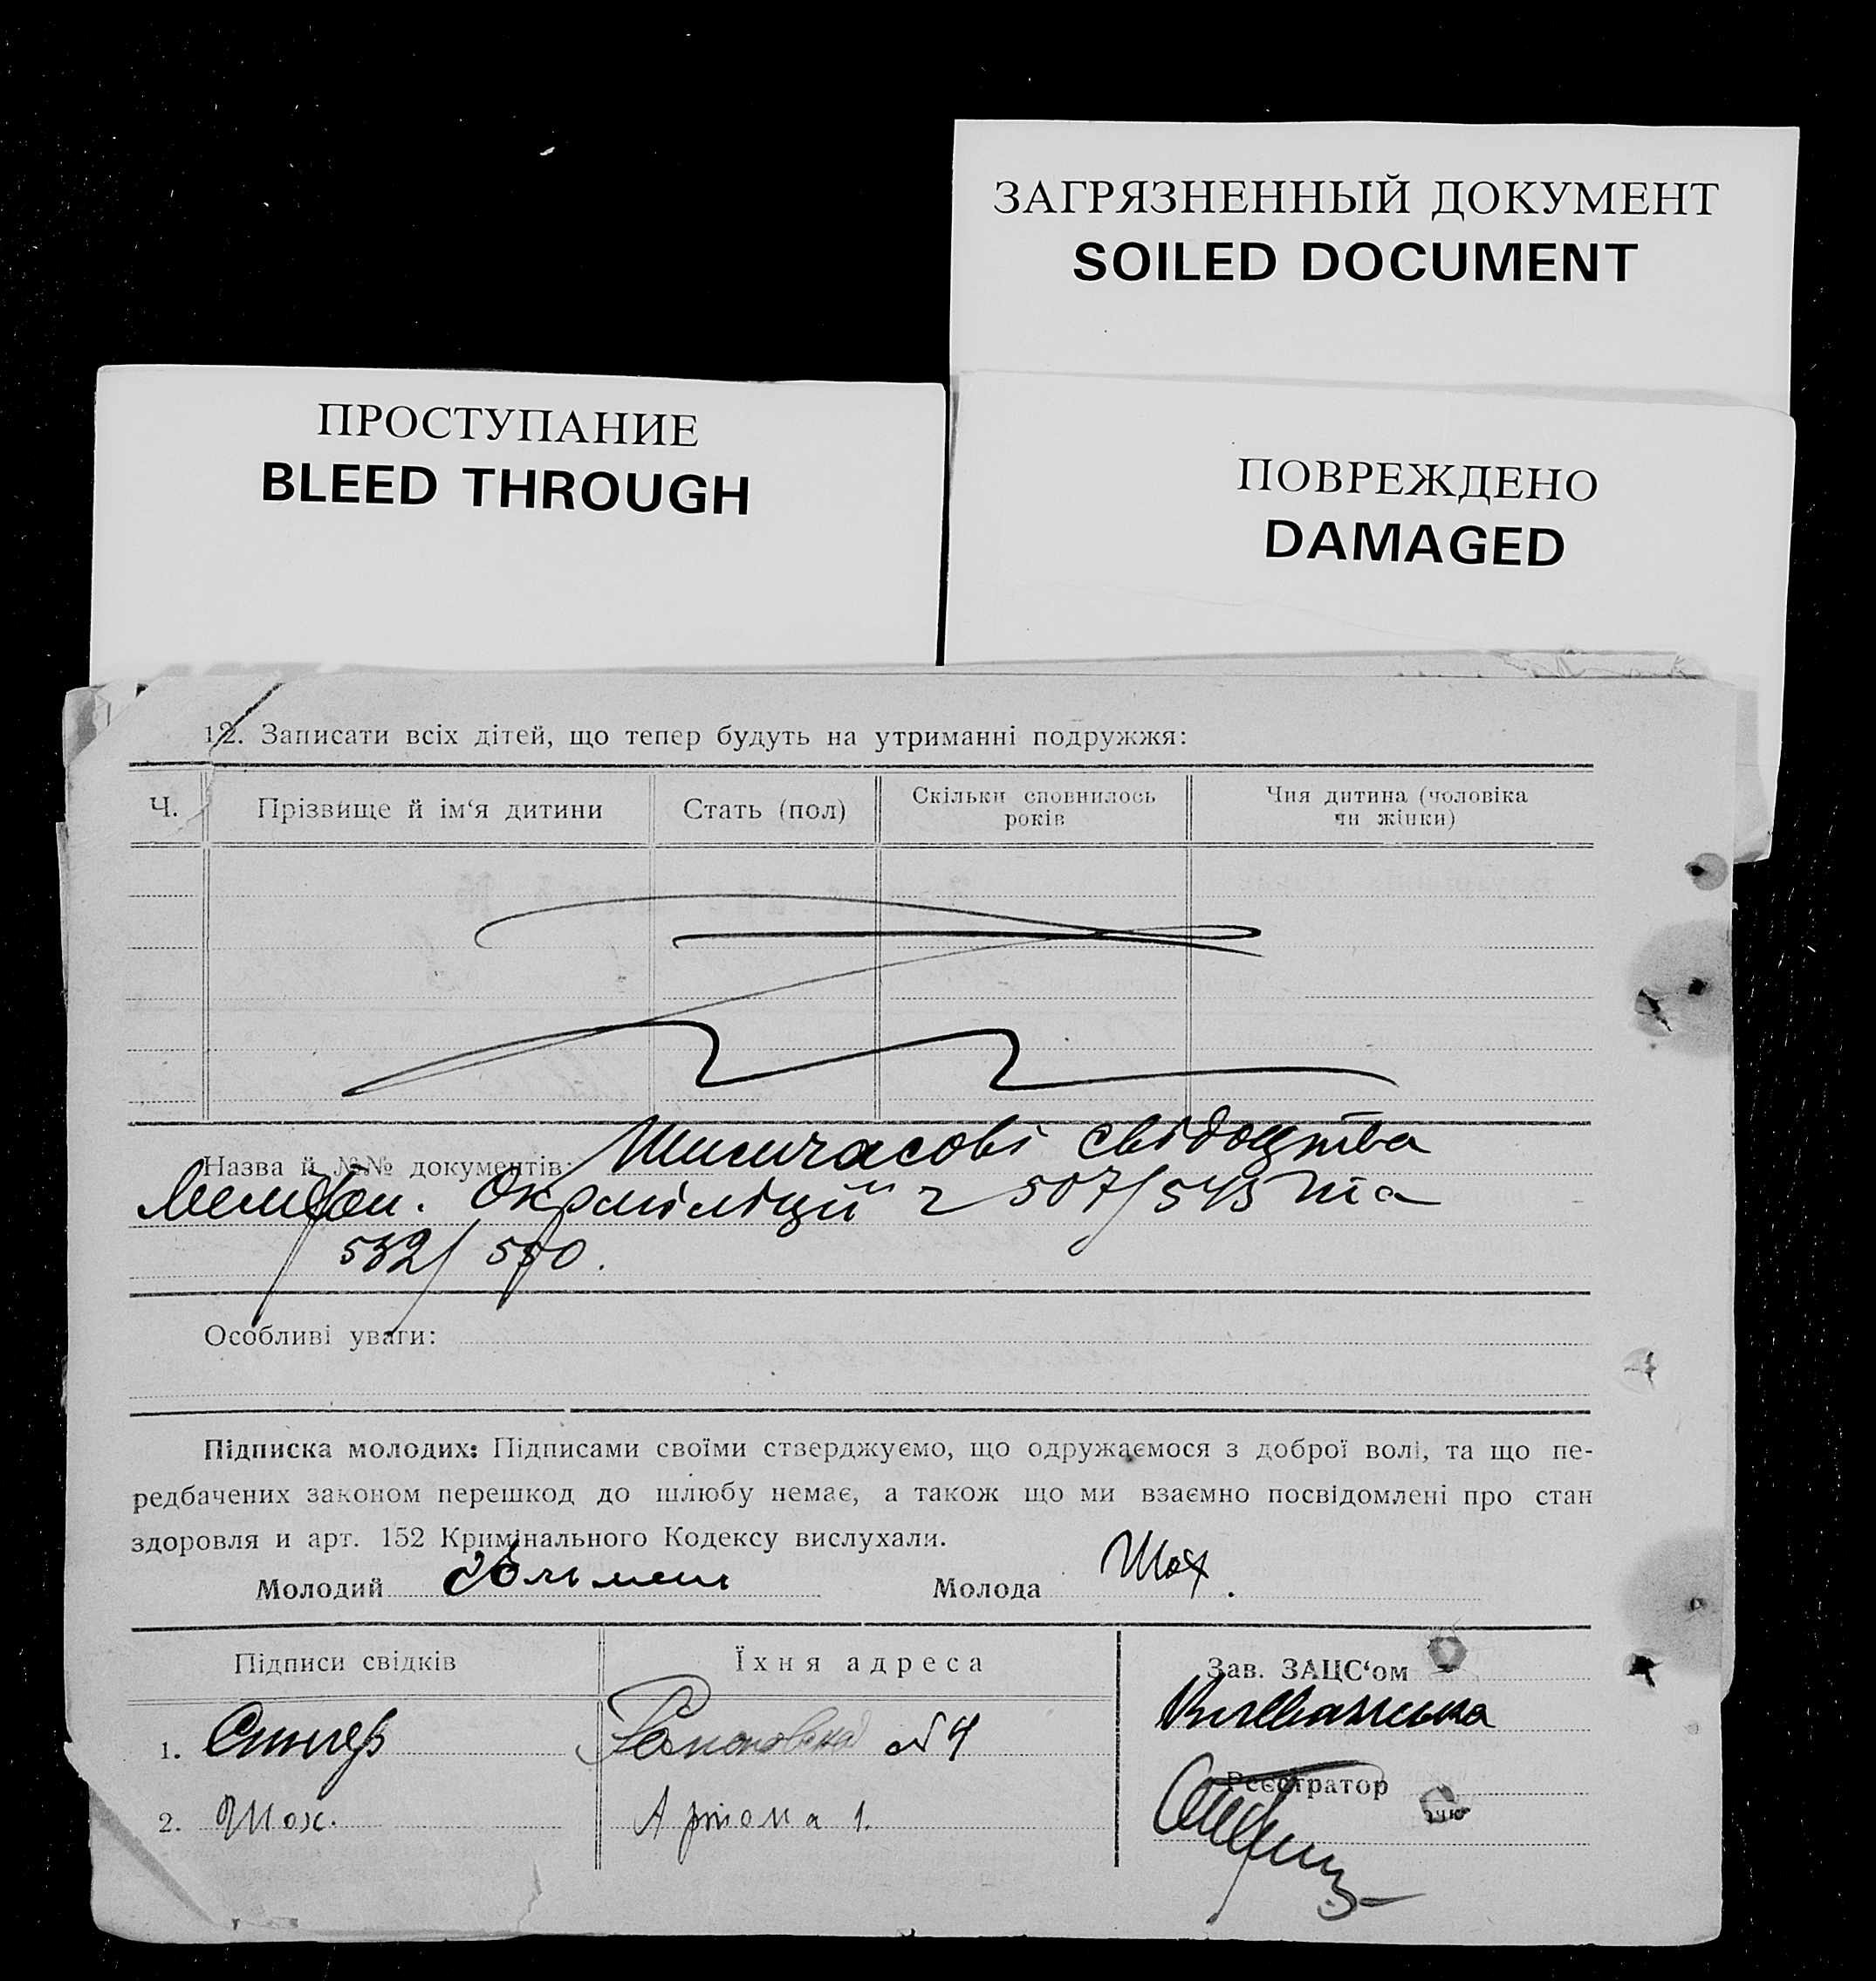 ЗАГРЯЗНЕННЫЙ ДОКУМЕНТ
SOILED DOCUMENT
ПРОСТУПАНИЕ
BLEED THROUGH
ПОВРЕЖДЕНО
DAMAGED
12. Записати всіх дітей, що тепер будуть на утриманні подружжя:
Ч. Прізвище й ім‘я дитини Стать (пол) Скільки сповнилось років Чия дитина (чоловіка чи жінки)
Назва й №№ документів: Тимчасові свідоцтва
Окрміліції ч 507/543 та
532/550.
Особливі уваги:
Підписка молодих: Підписами своїми стверджуємо, що одружаємося з доброї волі, та що пе-
редбачених законом перешкод до шлюбу немає, а також що ми взаємно посвідомлені про стан
здоровля и арт. 152 Кримінального Кодексу вислухали.
Молодий Молода Шох.
Підписи свідків Їхня адреса Зав. ЗАЦС‘ом
1. №4
Реєстратор
2. Шох. Артема 1.